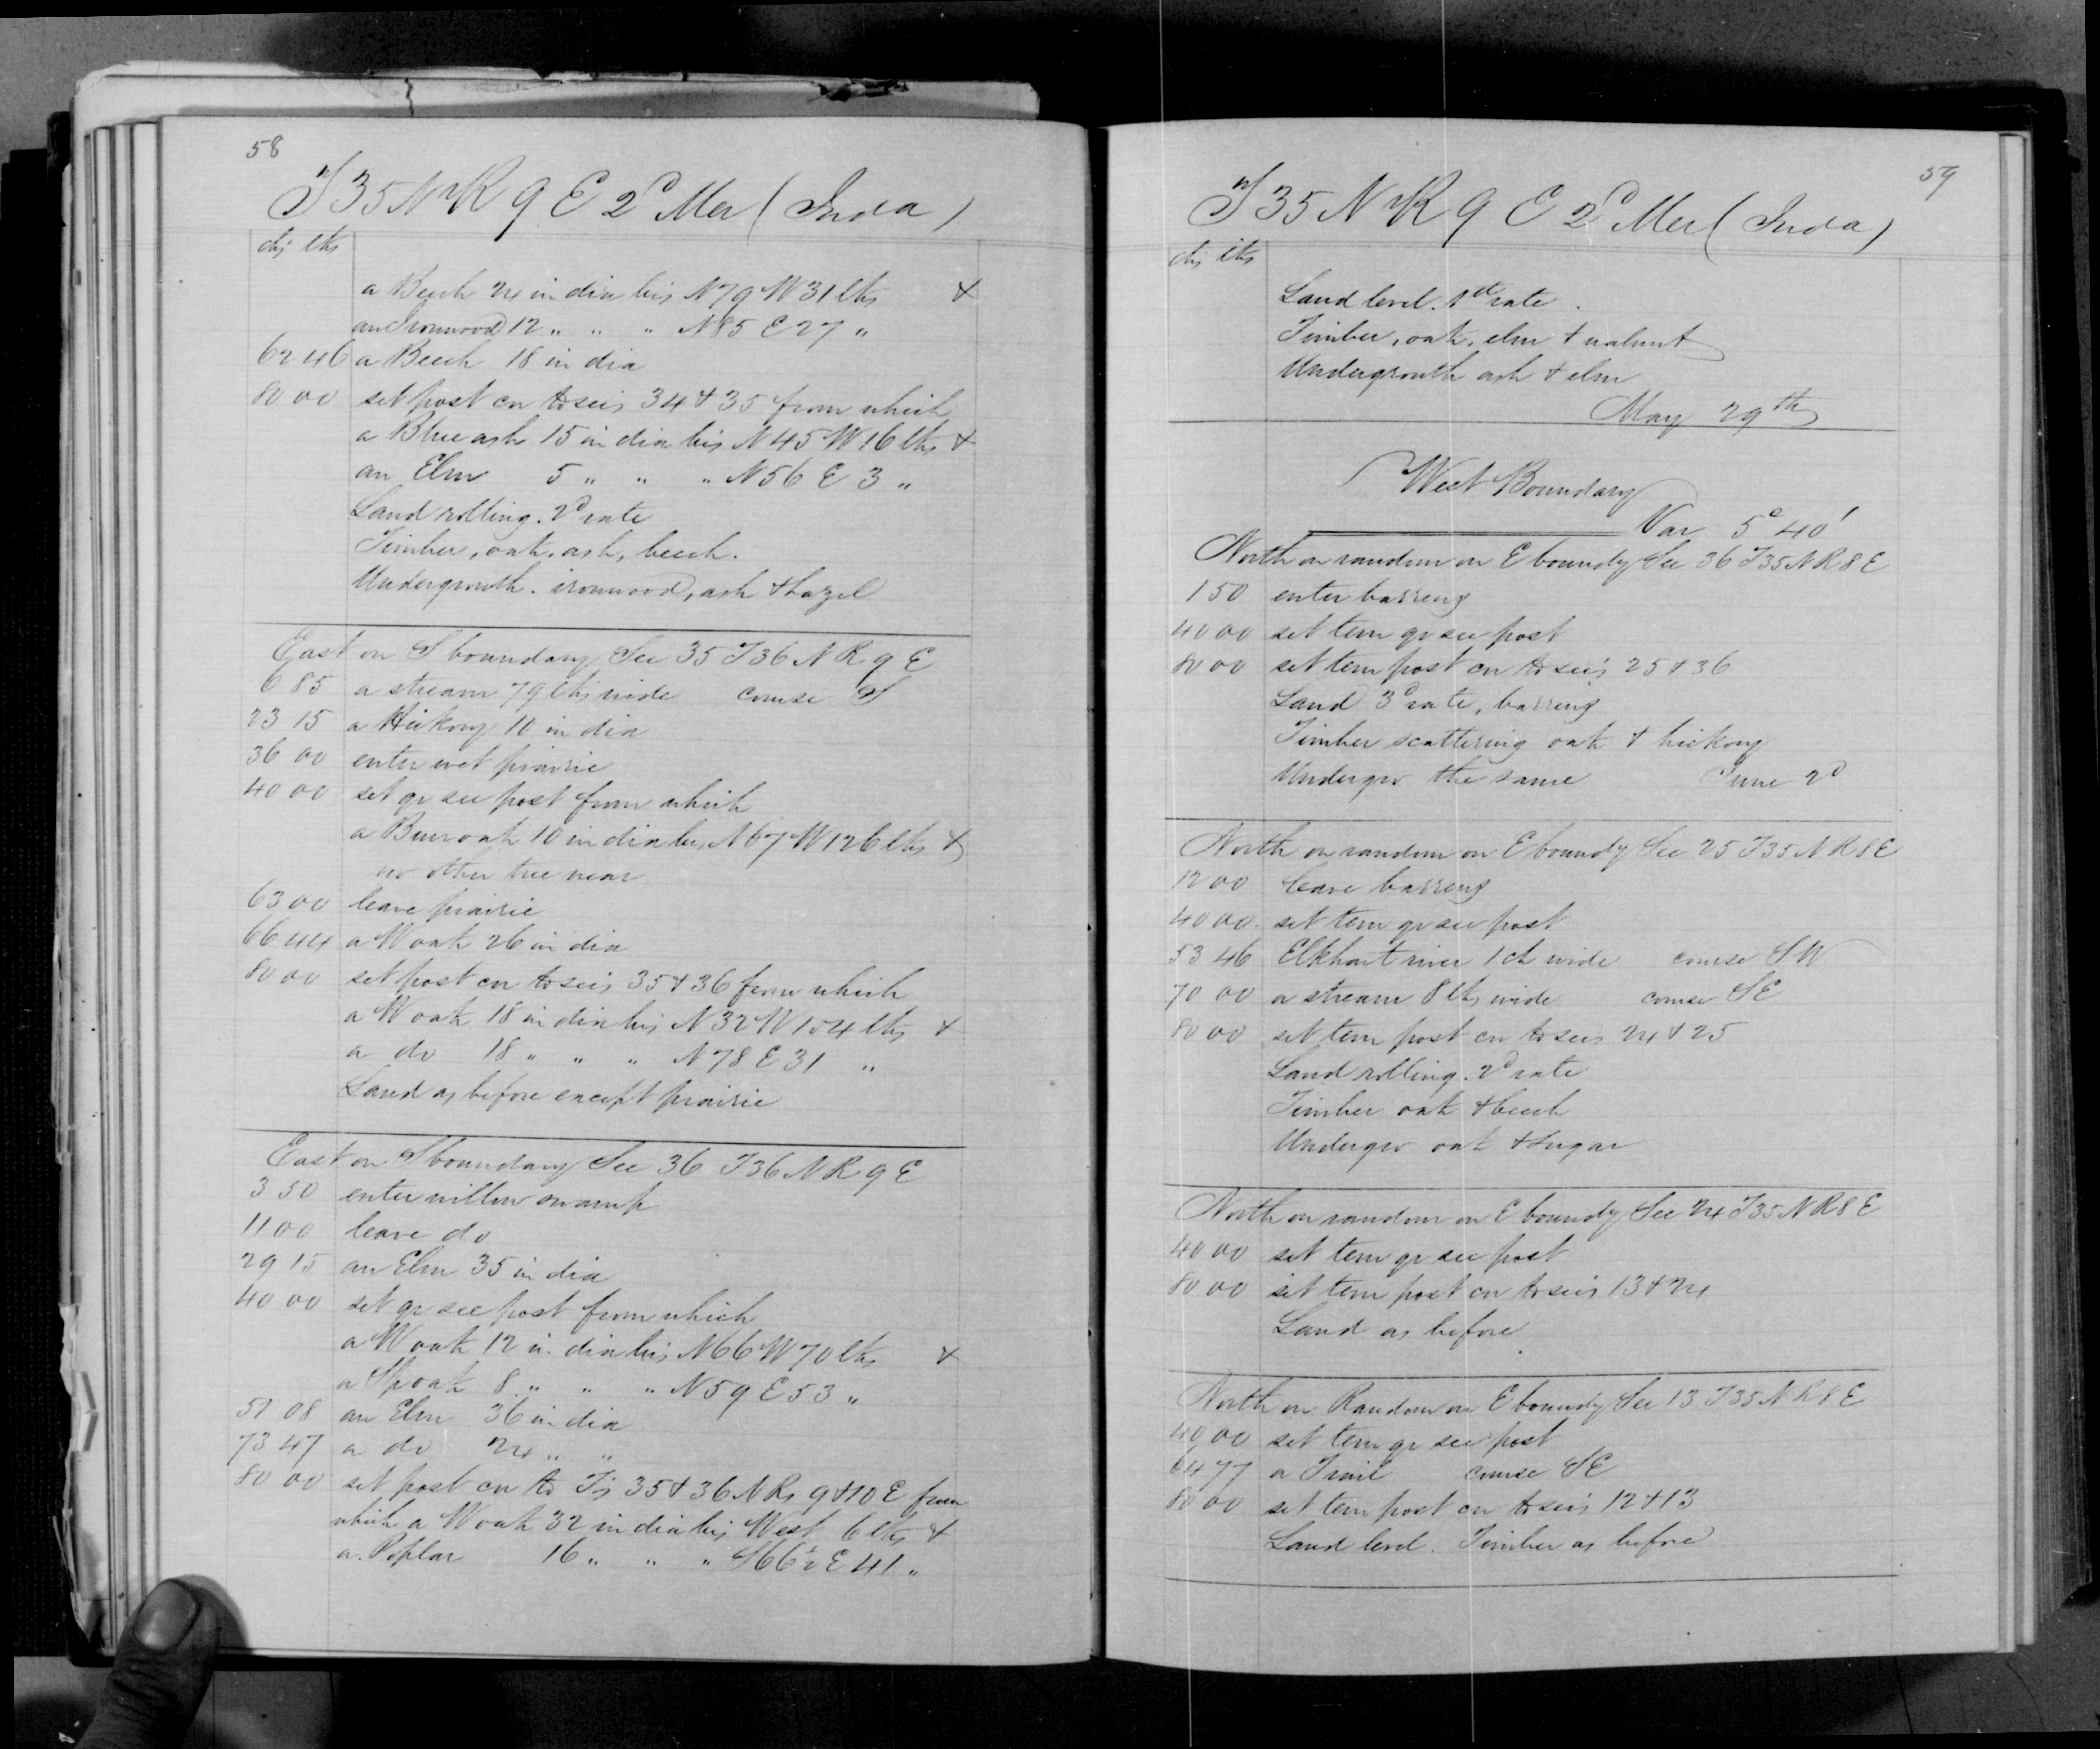 58
T 35 N R 9 E 2d Mer (Inda)
chs lks
a Beech 24 in dia brs N 79 W 31 lks &
an Ironwood 12 " " " N 85 E 27 "
62 46 a Beech 18 in dia
80 00 set post cor to secs 34 & 35 from which
a Blue ash 15 in dia brs N 45 W 16 lks &
an Elm 5 " " " N 56 E 3 "
Land rolling. 2d rate
Timber, oak, ash, beech.
Undergrowth. ironwood, ash & hazel
East on S boundary Sec 35 T 36 N R 9 E
6 85 a stream 79 lks wide course S
23 15 a Hickory 10 in dia
36 00 enter wet prairie
40 00 set qr sec post from which
a Burr oak 10 in dia brs N 67 W 126 lks &
no other tree near
63 00 leave prairie
66 44 a W oak 26 in dia
80 00 set post cor to secs 35 & 36 from which
a W oak 18 in dia brs N 32 W 154 lks &
a do 18 " " " N 78 E 31 "
Land as before except prairie
East on S boundary Sec 36 T 36 N R 9 E
3 50 enter willow swamp
11 00 leave do
29 15 an Elm 35 in dia
40 00 set qr sec post from which
a W oak 12 in dia brs N 66 W 70 lks &
a Sp oak 8 " " " N 59 E 53 "
51 08 an Elm 36 in dia
73 47 a do 24 " "
80 00 set post cor to Ts 35 & 36 N Rs 9 & 10 E from
which a W oak 32 in dia brs West 6 lks &
a Poplar 16 " " " S 66½ E 41 "
59
T 35 N R 9 E 2d Mer (Inda)
chs lks
Land level. 1st rate.
Timber, oak, elm & walnut
Undergrowth ash & elm
May 29th
West Boundary
Var 5° 40'
North on random on E boundy Sec 36 T 35 N R 8 E
1 50 enter barrens
40 00 set tem qr sec post
80 00 set tem post cor to secs 25 & 36
Land 3d rate, barrens
Timber scattering oak & hickory
Undergro the same June 2d
North on random on E boundy Sec 25 T 35 N R 8 E
12 00 leave barrens
40 00 set tem qr sec post
53 46 Elkhart river 1 ch wide course SW
70 00 a stream 8 lks wide course SE
80 00 set tem post cor to secs 24 & 25
Land rolling. 2d rate
Timber oak & beech
Undergro oak & sugar
North on random on E boundy Sec 24 T 35 N R 8 E
40 00 set tem qr sec post
80 00 set tem post cor to secs 13 & 24
Land as before
North on Random on E boundy Sec 13 T 35 N R 8 E
40 00 set tem qr sec post
64 77 a Trail course SE
80 00 set tem post cor to secs 12 & 13
Land level. Timber as before